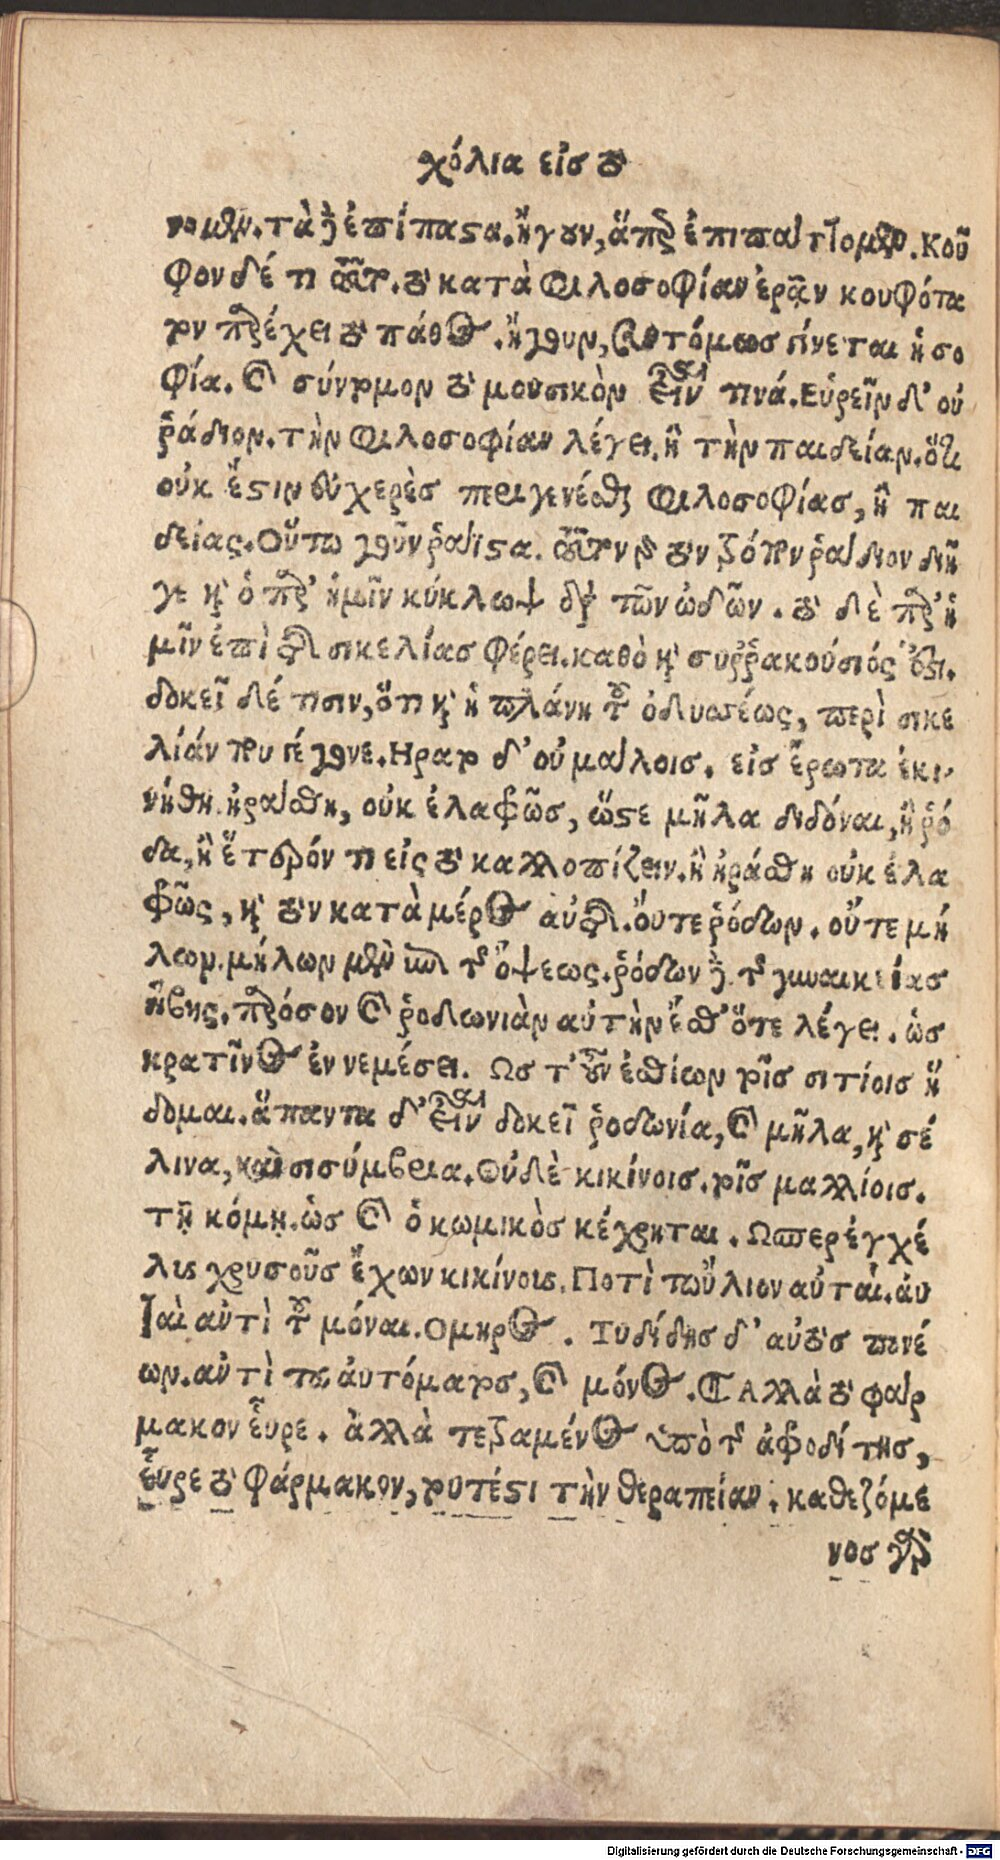 χόλια εἰσ τὸ
νομεν. τὰ δὲ ἐπίπαστα. ἤγουν, ἅπερ ἐπιπάττομεν. Κοῦ
φον δέ τι τοῦτο. τὸ κατὰ φιλοσοφίαν ἐρᾷν κουφότα
τον παρέχει τὸ πάθος. ἤγουν, γίνεται ἡ σο
φία. καὶ σύντομον τὸ μουσικὸν εἶναί τινά. Εὑρεῖν δ' οὐ
ῥάδιον. τὴν φιλοσοφίαν λέγει. ἢ τὴν παιδείαν. ὅτι
οὐκ ἔστιν εὐχερὲσ περιγενέσθαι φιλοσοφίας, ἢ παι
δείας. Οὕτω γοῦν ῥάϊστα. ῥάδιον διῆ
γε καὶ ὁ παρ' ἡμῖν κύκλωψ διὰ τῶν ὠδῶν. τὸ δὲ παρ' ἡ
μῖν ἐπὶ τῆς σικελίασ φέρει. καθὸ καὶ συῤῥακούσιός ἐστι.
δοκεῖ δέ τισιν, ὅτι καὶ ἡ πλάνη τοῦ ὀδυσσέως, περὶ σικε
λίάν που γέγονε. Ηρατο δ' οὐ μάλοισ. εἰσ ἔρωτα ἐκι
νήθη. ἠράσθη, οὐκ ἐλαφρῶσ, ὥστε μῆλα διδόναι, ἢ ῥό
δα, ἢ ἕτερόν τι εἰς τὸ καλλοπίζειν. ἢ ἠράσθη οὐκ ἐλα
φρῶς, καὶ τῶν κατὰ μέρος αὐτῆς. ὄυτε ῥόδων. οὔτε μή
λων. μήλων μὲν ἐπὶ τῆς ὄψεως. ῥόδων δὲ τῆς γυναικείασ
ἥβης. παρόσον καὶ ῥοδωνιὰν αὐτὴν ἔσθ' ὅτε λέγει. ὡσ
κρατῖνος ἐν νεμέσει. Ωσ τ' οὖν ἐσθίων τοῖσ σιτίοισ ἥ
δομαι. ἅπαντα δ' εἶναι δοκεῖ ῥοδωνία, καὶ μῆλα, καὶ σέ
λινα, καὶ σισύμβρια. Οὐδὲ κικίνοισ. τοῖσ μαλλίοισ.
τῇ κόμῃ. ὡσ καὶ ὁ κωμικὸσ κέχρηται. Ωσπερ ἐγχέ
λισ χρυσοῦσ ἔχων κικίνοισ. Ποτὶ τωὔλιον αὐταί. ἀυ
ταὶ αὐτὶ τοῦ μόναι. Ομηρος. Τυδίδησ δ' αὐτὸσ πνέ
ων. αὐτὶ τοῦ ἀυτόματοσ, καὶ μόνος. ¶ Αλλὰ τὸ φάρ
μακον ἕυρε. ἀλλὰ τετραμένος ὑπὸ τῆς ἀφροδίτησ,
ἕυρε τὸ φάρμακον, τουτέστι τὴν θεραπείαν. καθεζόμε
νοσ γὰρ